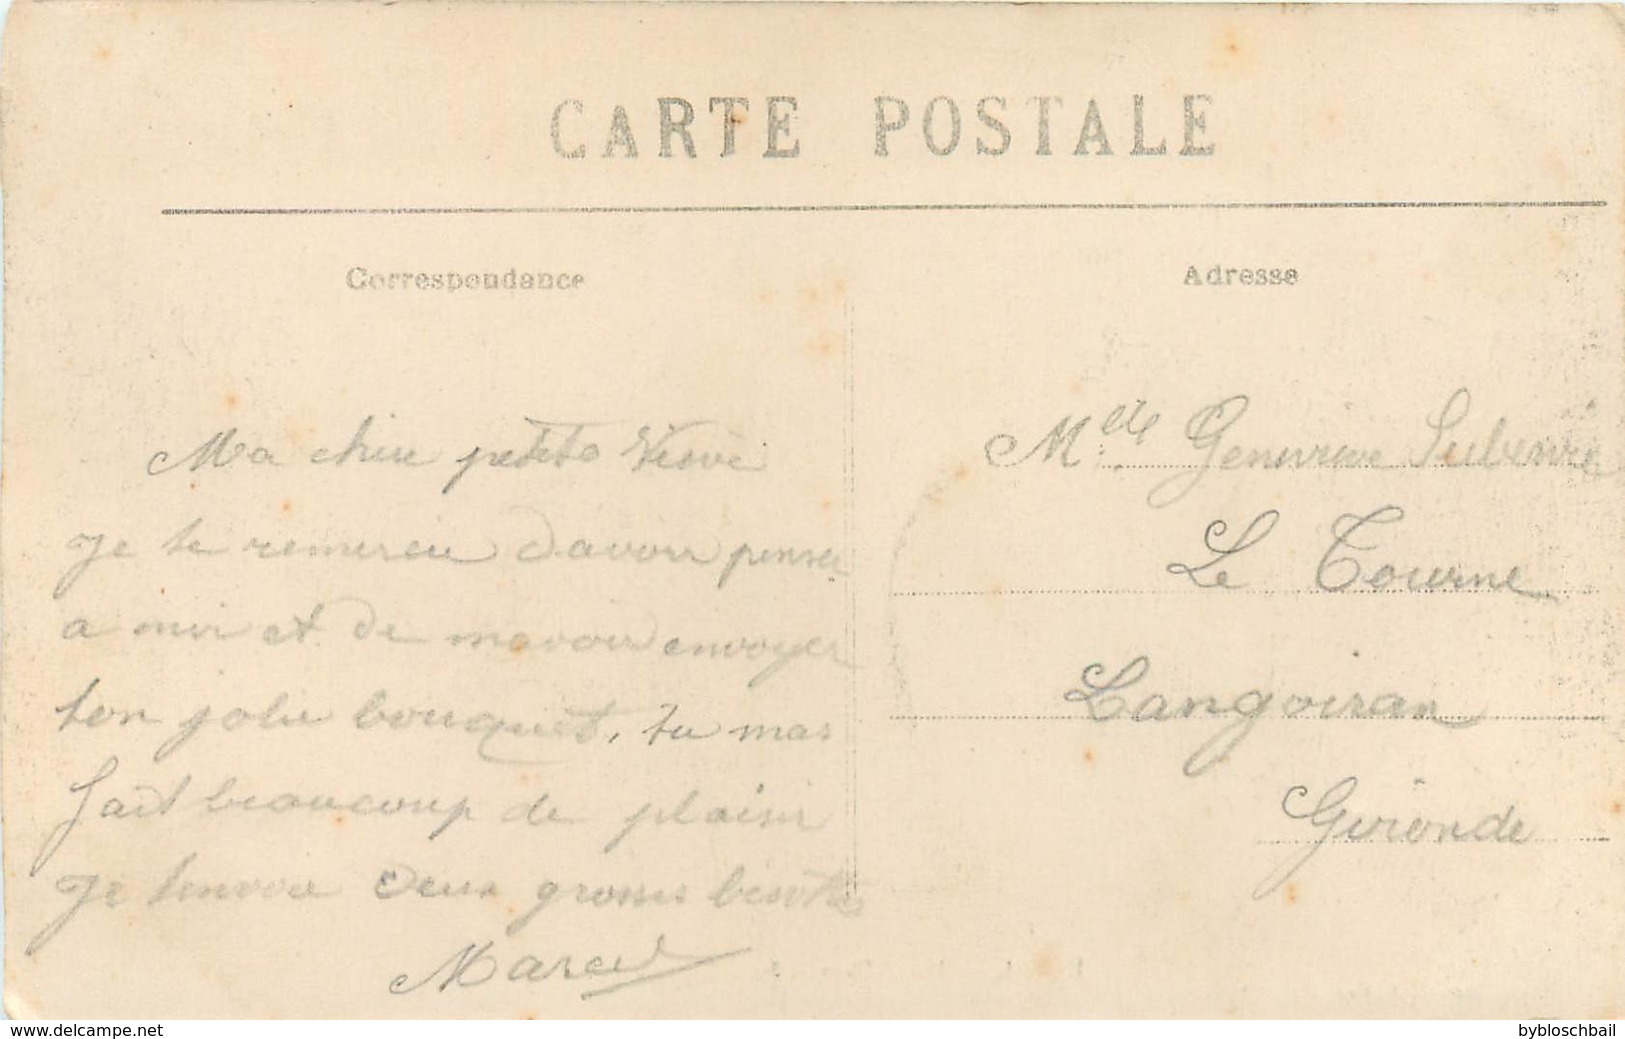 CARTE POSTALE
Correspondance
Adresse
Ma chere petite
Je te remercie davoir penser
a moi et de mavoir envoyer
ton jolie bouquet, tu mas
fait beaucoup de plaisir
Je tenvoie deux grosses
Marcel
Mlle Genevieve
Le Tourne
Langoiran
Gironde
www.delcampe.net
bybloschbail